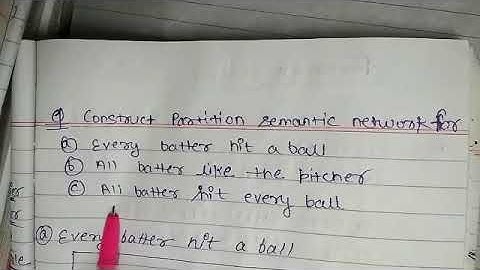 Q Construct Partition semantic network for
(a) Every batter hit a ball
(b) All batter like the pitcher
(c) All batter hit every ball
(a) Every batter hit a ball